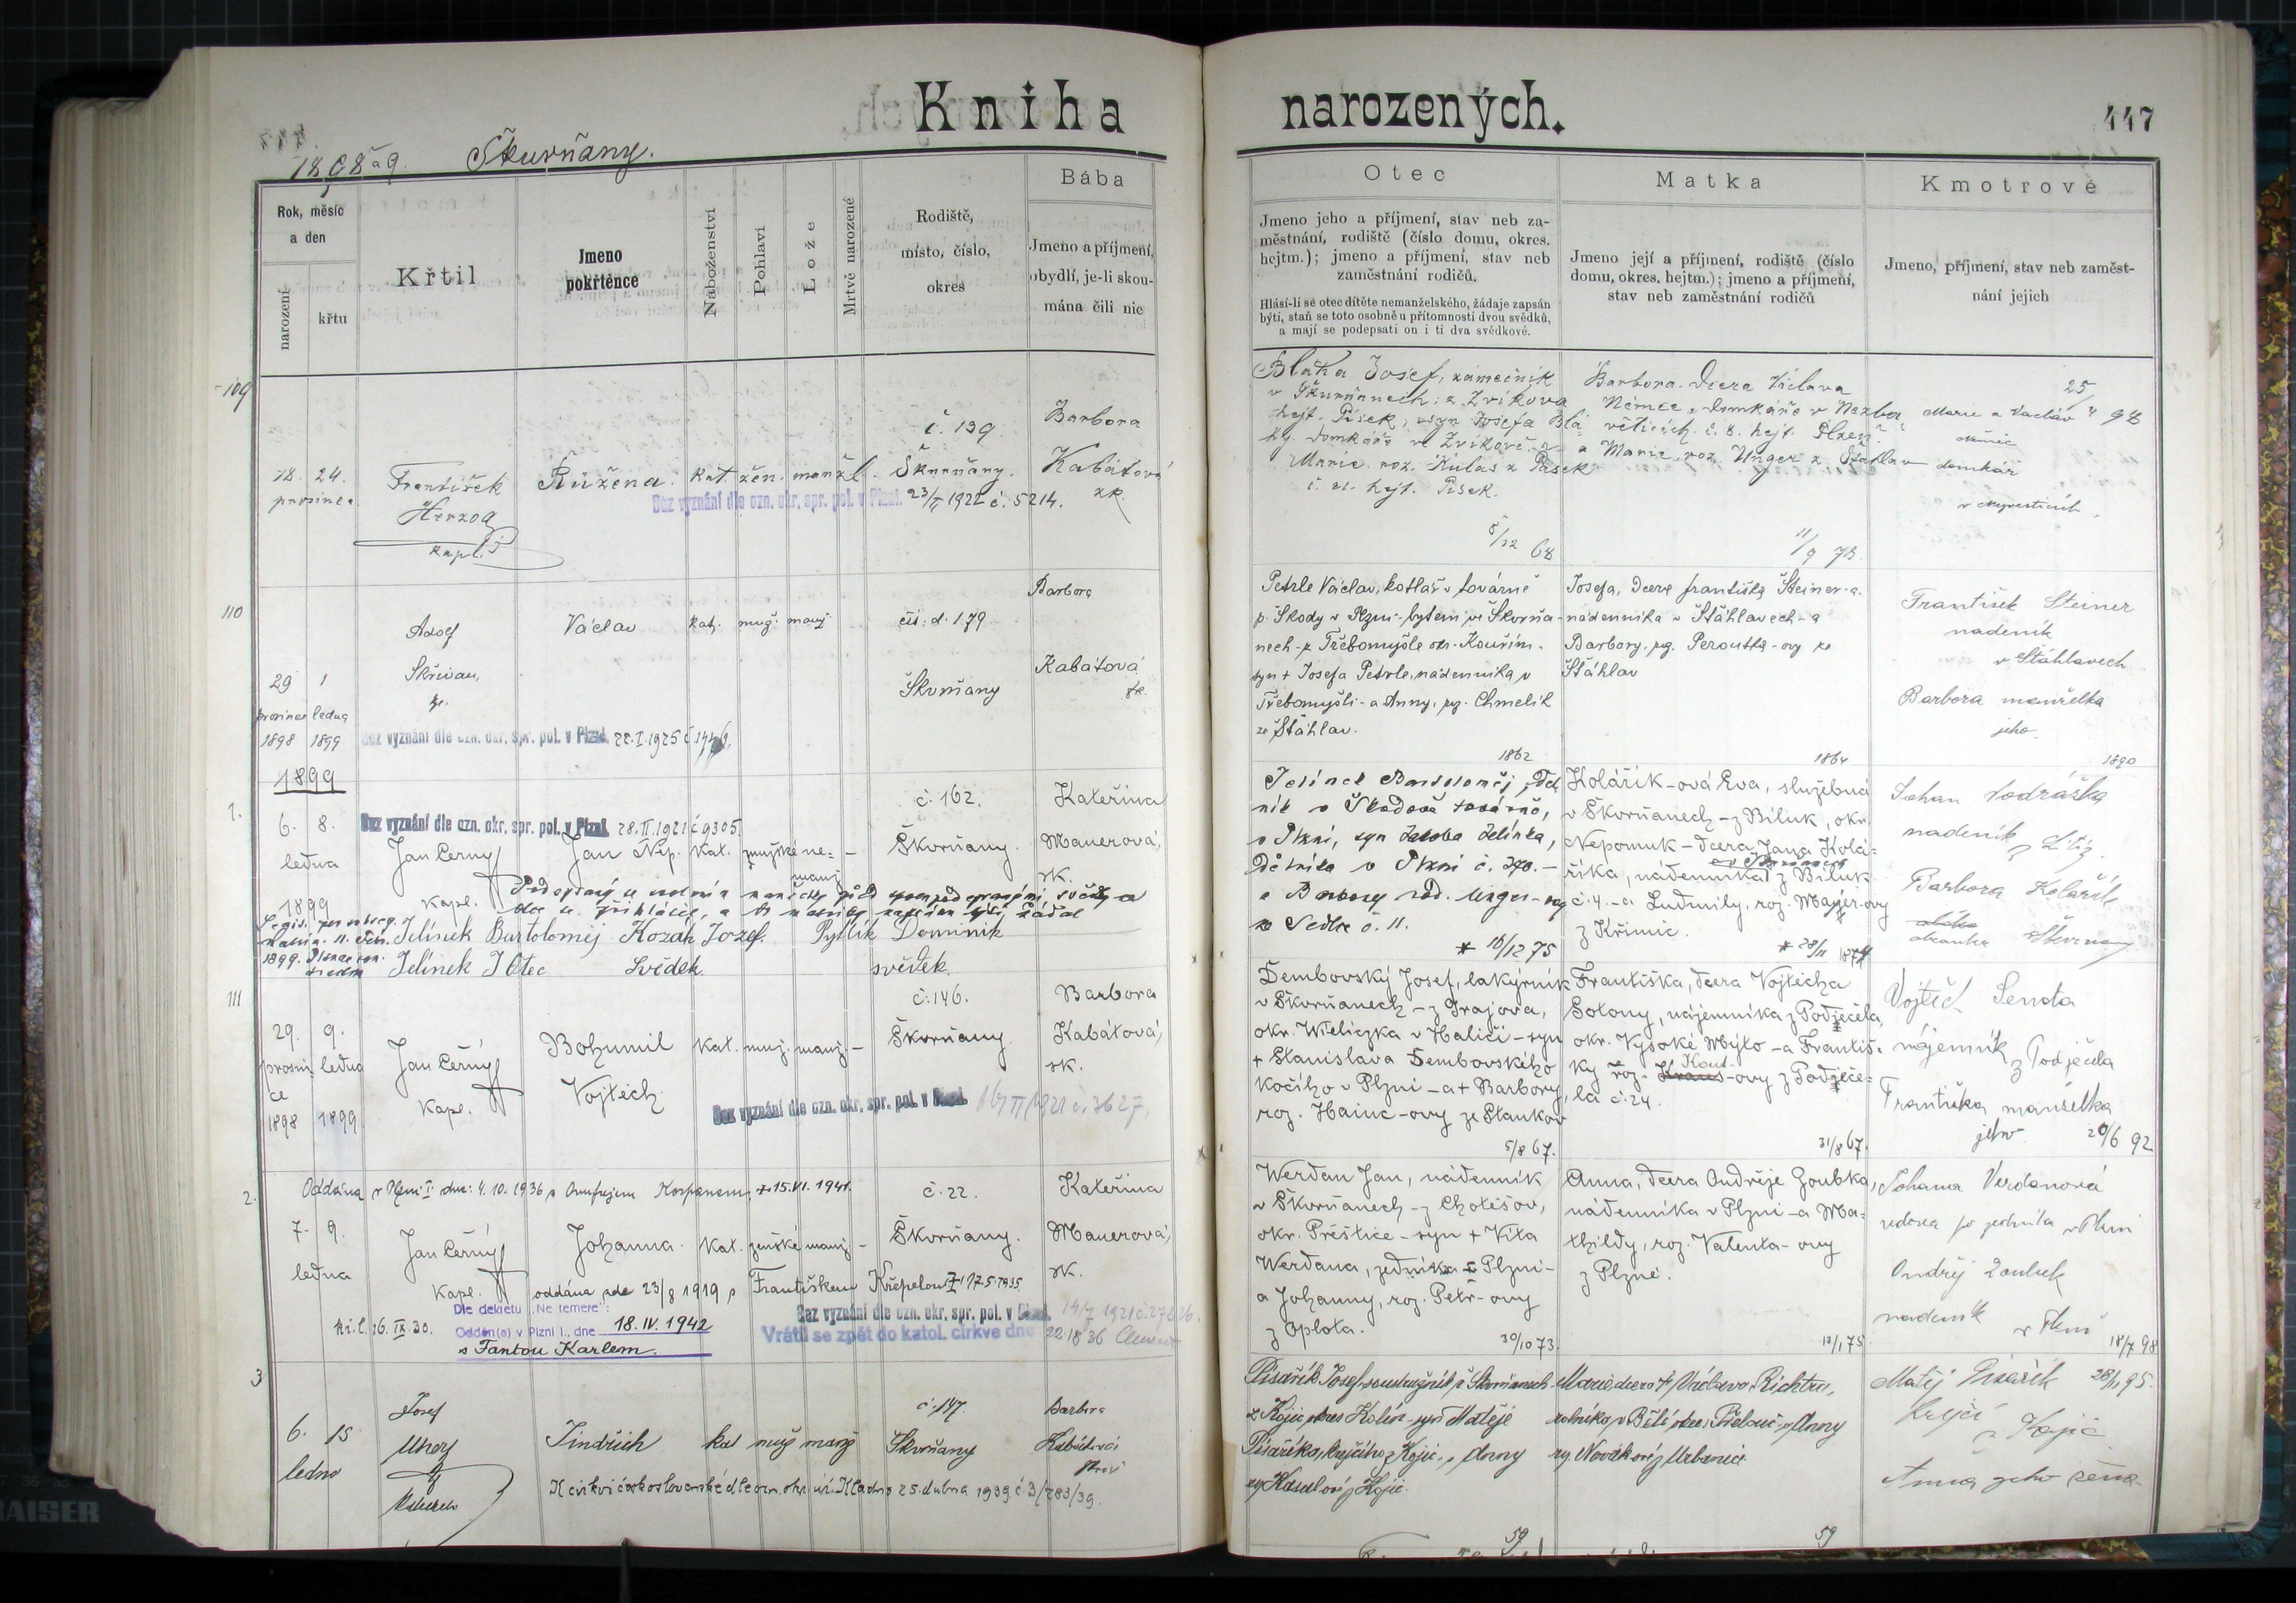 Kniha narozených.
447
1898 a 9. Škvrňany.
Rok, měsíc
a den
narození
křtu
Křtil
Jmeno
pokřtěnce
Náboženství
Pohlaví
Lože
Mrtvě narozené
Rodiště,
místo, číslo,
okres
Bába
Jmeno a příjmení,
obydlí, je-li skou-
mána čili nic
Otec
Jmeno jeho a příjmení, stav neb za-
městnání, rodiště (číslo domu, okres.
hejtm.); jmeno a příjmení, stav neb
zaměstnání rodičů.
Hlásí-li se otec dítěte nemanželského, žádaje zapsán
býti, staň se toto osobně u přítomnosti dvou svědků,
a mají se podepsati on i ti dva svědkové.
Matka
Jmeno její a příjmení, rodiště (číslo
domu, okres. hejtm.); jmeno a příjmení,
stav neb zaměstnání rodičů
Kmotrové
Jmeno, příjmení, stav neb zaměst-
nání jejich
109
18. 24.
prosince
František
Herzog
kapl.
Růžena
kat. žen. manžl.
č. 139
Škvrňany.
Barbora
Kabátová
zk.
Bez vyznání dle ozn. okr. spr. pol. v Plzni. 1922 č. 5214.
Bláha Josef, zámečník
v Škvrňanech z Zvíkova
hejt. Písek, syn Josefa Blá-
hy domkáře ve Zvíkově a
Marie roz. Kulas z Písek
č. 21. hejt. Písek.
5/12 68
Barbora dcera Václava
Němce, domkáře v Nezba-
věticích č. 8. hejt. Plzeň
a Marie roz. Unger z Šťáhlav
11/9 73.
25/4 98
Marie a Václav
domkář
110
29 1
prosince ledna
1898 1899
Adolf
Skřivan,
Václav
kat. muž. manž.
čís. d. 179
Škvrňany
Barbora
Kabátová
zk.
Bez vyznání dle ozn. okr. spr. pol. v Plzni. 22.I.1925
Petrle Václav, kotlář v továrně
p. Škody v Plzni - bytem ve Škvrňa-
nech - z Třebomyšle okr. Kouřim -
syn + Josefa Petrle, nádenníka v
Třebomyšli - a Anny, roz. Chmelík
ze Šťáhlav.
1862
Josefa, dcera Františka Steiner-a.
nádenníka v Šťáhlavech - a
Barbory, roz. Peroutka-ovy ze
Šťáhlav
1864
František Steiner
nadeník
v Šťáhlavech
Barbora manželka
jeho.
1890
1899
1.
6. 8.
ledna
1899
Bez vyznání dle ozn. okr. spr. pol. v Plzni. 28.II.1921 č 9305.
Jan Černý
kapl.
Jan Nep.
kat. mužské ne-
manž. –
č. 162.
Škvrňany.
Kateřina
Mauerová,
zk.
Jelínek Bartoloměj Kozák Josef. Pytlík Dominik
Jelínek J Otec Svědek svědek.
Jelínek Bartoloměj, děl-
ník v Škodově továrně,
v Plzni, syn Jakoba Jelínka,
dělníka v Plzni č. 370. -
a Barbory rod. Unger-ovy
ze Sedlce č. 11.
* 16/12 75
Kolářík-ová Eva, služebná
v Škvrňanech - z Biluk, okr.
Nepomuk - dcera Jana Kolá-
říka, nádenníka z Biluk
č. 4. - a Ludmily, roz. Mayer-ovy
z Křimic.
* 28/11 1874
Johan Vodrážka
nadeník z Litic.
Barbora Kolařík
Škvrňany
111
29. 9.
prosin- ledna
ce
1898 1899
Jan Černý
kapl.
Bohumil
Vojtěch
kat. muž. manž. –
č. 146.
Škvrňany
Barbora
Kabátová,
zk.
Bez vyznání dle ozn. okr. spr. pol. v Plzni. 1921 č. 3627,
Dembovský Josef, lakýrník
v Škvrňanech - z Grajova,
okr. Wieliczka v Haliči - syn
+ Stanislava Dembovského
kočího v Plzni - a + Barbory,
roz. Hainc-ovy ze Staňkov
5/8 67.
Františka, dcera Vojtěcha
Sotony, nájemníka z Podječela,
okr. Vysoké Mýto - a Františ-
ky roz. Kraus-ovy z Podječe-
la č. 24.
31/8 67.
Vojtěch
nájemník z Podječela
Františka manželka
jeho 20/6 92
2.
Oddána v Plzni I. dne: 4.10.1936 s Onufrijem + 15.VI.1941.
7. 9.
ledna
Jan Černý
kapl.
Johanna.
kat. ženské manž. –
č. 22.
Škvrňany.
Kateřina
Mauerová,
zk.
oddána zde 23/8 1919 s Františkem Křepelou + 17.5.1935.
Dle dekretu „Ne temere“:
Oddán(a) v Plzni I., dne 18.IV.1942
s Fantou Karlem.
16.IX.30.
Bez vyznání dle ozn. okr. spr. pol. v Plzni. 1921
Vrátil se zpět do katol. církve dne 22.
Werdan Jan, nádenník
v Škvrňanech - z Chotěšov,
okr. Přeštice - syn + Víta
Werdana, zedníka z Plzni -
a Johanny, roz. Petř-ovy
z Oplota.
30/10 73.
Anna, dcera Ondřeje Zoubka,
nádenníka v Plzni - a Ma-
thildy, roz. Valenta-ovy
z Plzně.
13/1 75
Johana Verdanová
vdova po zedníku v Plzni
Ondřej Zoubek
nadeník
v Plzni
18/7 98
3
6. 15
ledna
Josef
Jindřich
kat muž manž
č. 147.
Škvrňany
Barbora
Kabátová
K církvi československé dle ozn. okr. úř. Kladno 25. dubna 1939 č. 3/283/39.
Pisařík Josef, soustružník v Škvrňanech
z Kojic okres Kolín - syn Matěje
Pisaříka, krejčího z Kojic, a Anny
Marie, dcera + Václava Richtra,
rolníka, v Bělé okres Přelouč - a Anny
roz. Novákové z Urbanic
Matěj Pisařík 28/11 95.
krejčí
z Kojic
Anna jeho žena
59
59